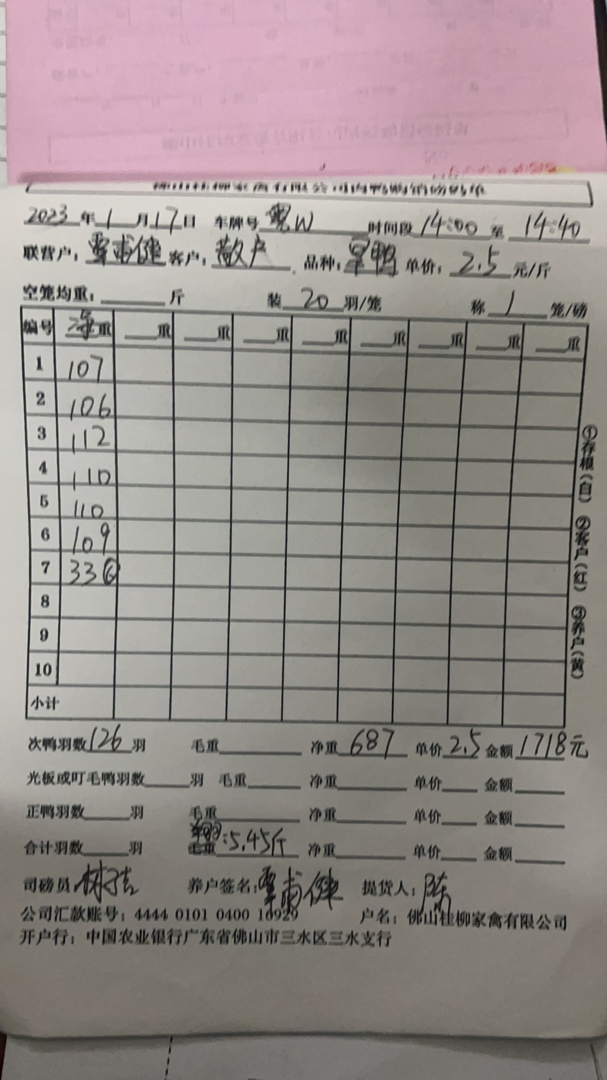 佛山桂柳家禽有限公司肉鸭购销磅码单
2023年1月17日 车牌号 粤W 时间段 14:00 至 14:40
联营户: 覃甫健 客户: 散户 品种: 单价: 2.5 元/斤
空笼均重: 斤 装 20 羽/笼 称 1 笼/磅
编号 净重 重 重 重 重 重 重 重 重
1 107
2 106
3 112
4 110
5 110
6 109
7 33 ⑥
8
9
10
小计
①存根(白) ②客户(红) ③养户(黄)
次鸭羽数 126 羽 毛重 净重 687 单价 2.5 金额 1718元
光板或叮毛鸭羽数 羽 毛重 净重 单价 金额
正鸭羽数 羽 毛重 净重 单价 金额
合计羽数 羽 毛重 :5.45斤 净重 单价 金额
司磅员 养户签名: 覃甫健 提货人: 陈
公司汇款账号: 4444 0101 0400 16929 户名: 佛山桂柳家禽有限公司
开户行: 中国农业银行广东省佛山市三水区三水支行